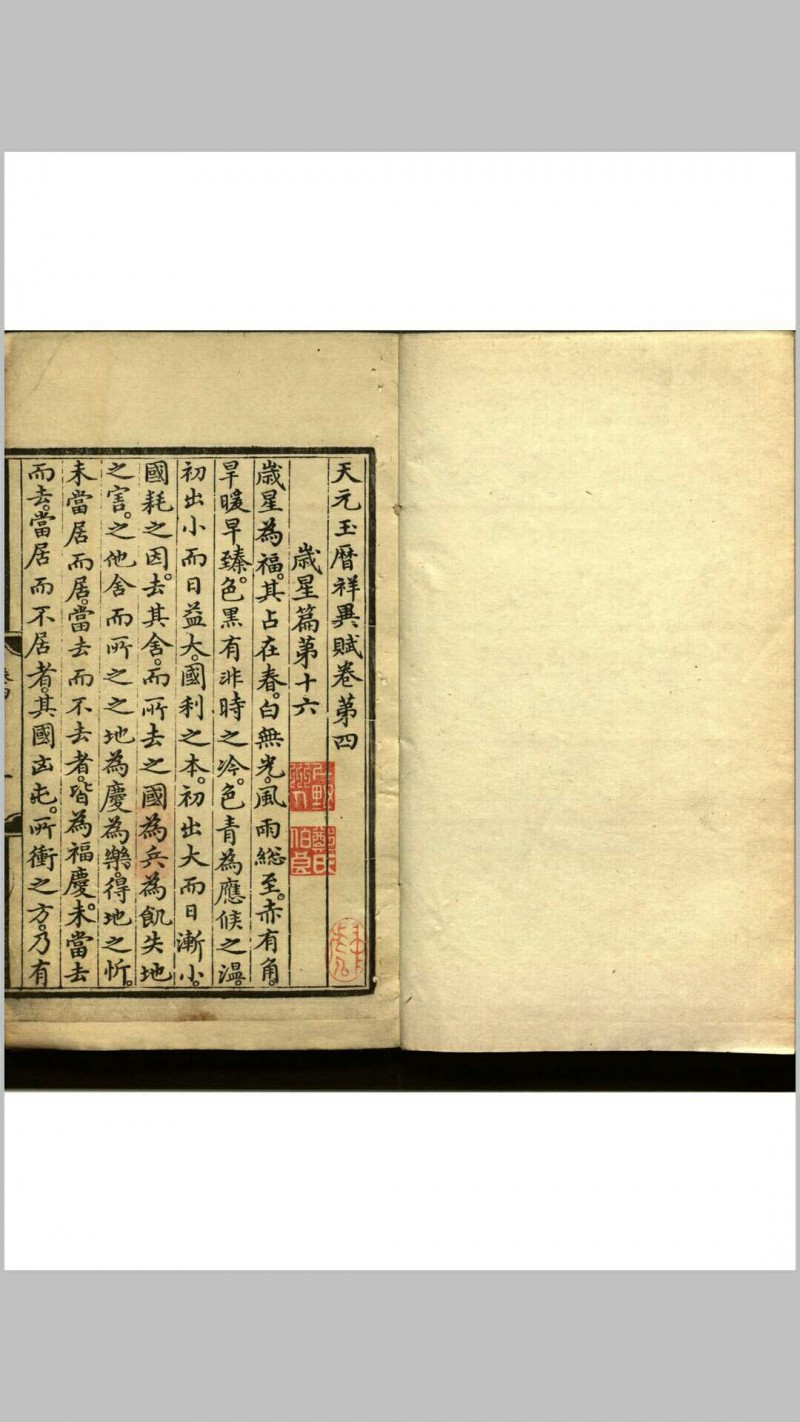 天元玉曆祥異賦卷第四
歲星篇第十六
歲星為福。其占在春。白無光。風雨總至。赤有角。
旱暖早臻。色黑有非時之冷。色青為應候之溫。
初出小而日益大。國利之本。初出大而日漸小。
國耗之因。去其舍。而所去之國為兵為飢失地
之害。之他舍而所之之地為慶為樂。得地之忻。
未當居而居。當去而不去者。皆為福慶。未當去
而去。當居而不居者。其國凶屯。所衝之方。乃有